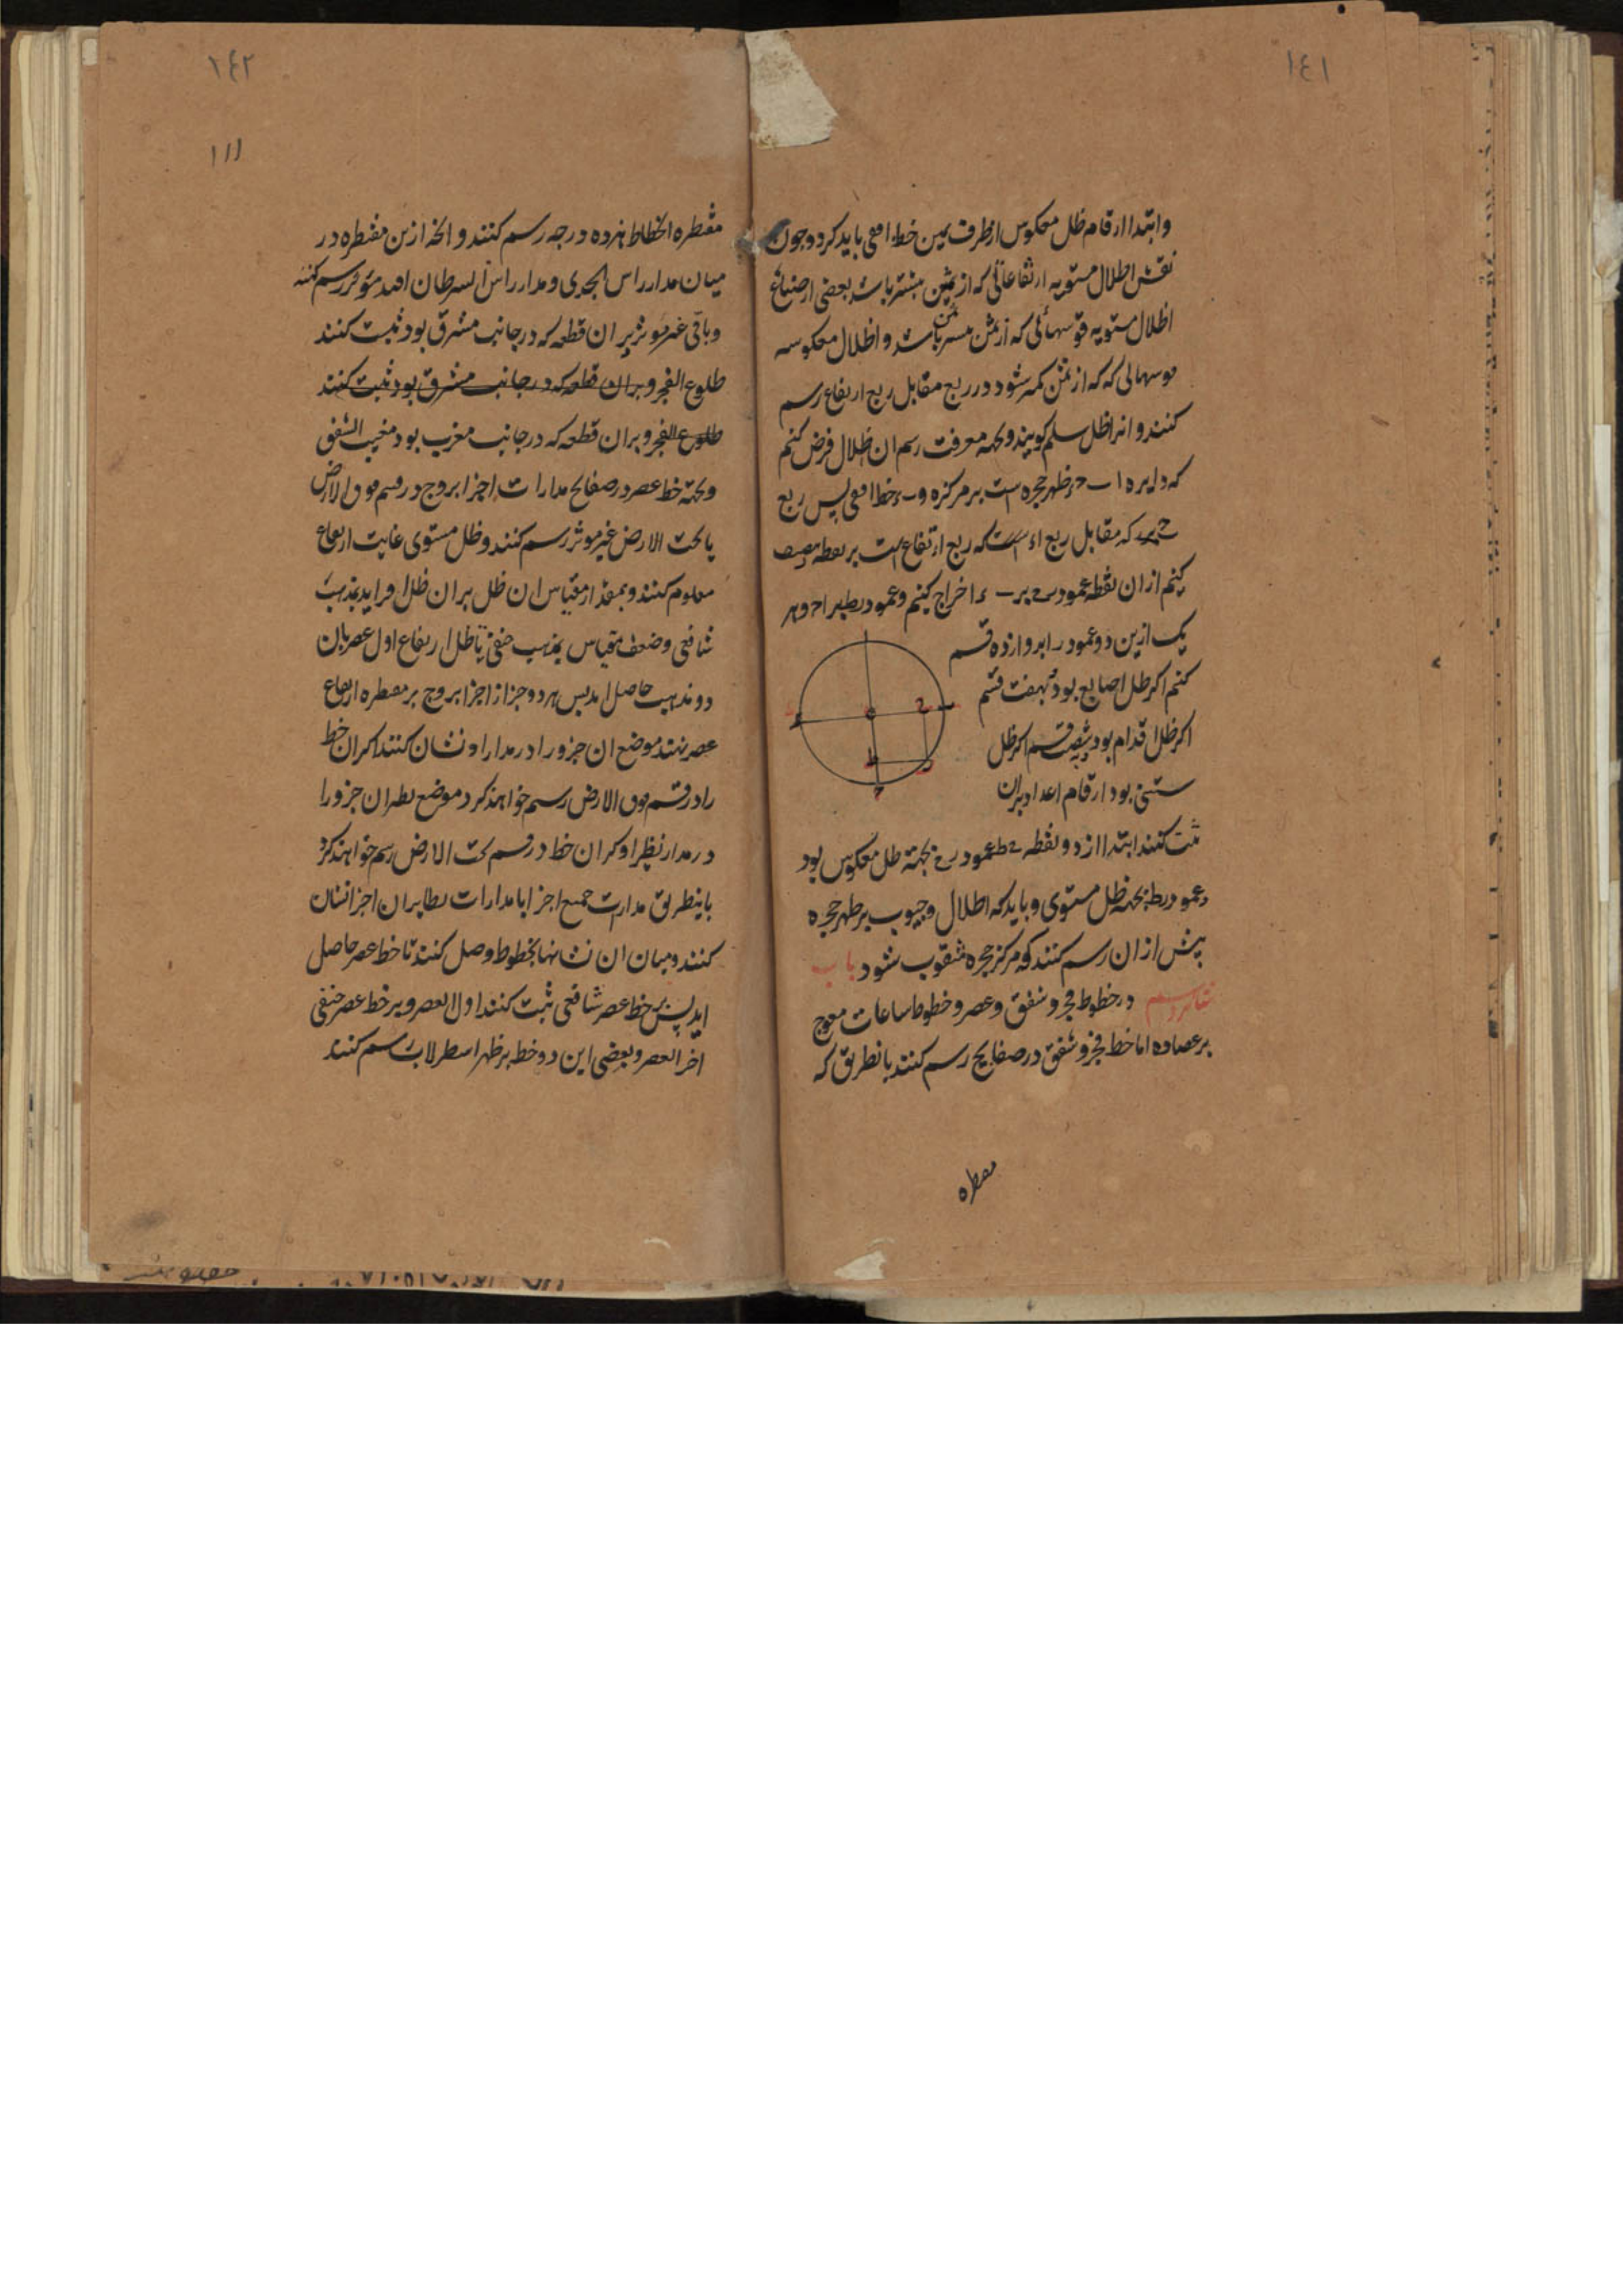 ١٤١
وابتدا ارقام ظل معکوس از طرف یمین خط افقی باید کرد و چون
نقش اظلال مستویه ارتفاعاتی که از ثمن بیشتر باشد بعضی از صناع
اظلال مستویه قوسهائی که از ثمن باشد و اظلال معکوسه
قوسهائی که که از ثمن کمتر شود در ربع مقابل ربع ارتفاع رسم
کنند و انرا ظل سلم کویند و بجهة معرفت رسم ان ظلال فرض کنیم
که دایره ا ب ح ء ظهر حجره است بر مرکز ه و ب ء خط افقی پس ربع
که مقابل ربع ا ء است که ربع ارتفاع است بر نقطه ر تنصیف
کنیم از ان نقطه عمود بر ب ء اخراج کنیم و عمود ر ط بر ا ح و هر
یک ازین دو عمود را بدوازده قسم
کنیم اکر ظل اصابع بود بهفت قسم
اکر ظل اقدام بود بشصت قسم اکر ظل
ستینی بود ارقام اعداد بران
ثبت کنند ابتدا از دو نقطه ح ط عمود ر ح بجهة ظل معکوس بود
و عمود ر ط بجهة ظل مستوی و باید که اظلال و جیوب بر ظهر حجره
پیش از ان رسم کنند که مرکز حجره مثقوب شود باب
در خطوط فجر و شفق و عصر و خطوط ساعات معوج
بر عضاده اما خط فجر و شفق در صفایح رسم کنند بانطریق که
مقطره
١٤٢
١١١
مقطره انحطاط هژده درجه رسم کنند و انچه ازین مقنطره در
میان مدار راس الجدی و مدار راس السرطان افتد مؤثر رسم کنند
و باقی غیر موثر بر ان قطعه که در جانب مشرق بود ثبت کنند
طلوع الفجر و بران قطعه که در جانب مشرق بود ثبت کنند
طلوع الفجر و بران قطعه که در جانب مغرب بود مغیب الشفق
و بجهة خط عصر در صفایح مدارات اجزا بروج در قسم فوق الارض
یا تحت الارض غیر موثر رسم کنند و ظل مستوی غایت ارتفاع
معلوم کنند و بمقدار مقیاس ان ظل بر ان ظل افزایند بمذهب
شافعی و ضعف مقیاس بمذهب حنفی تا ظل ارتفاع اول عصر بان
دو مذهب حاصل اید پس هر دو جزاز اجزا بروج بر مقطره ارتفاع
عصر نهند موضع ان جزو را در مدار او نشان کنند اکر ان خط
را در قسم فوق الارض رسم خواهند کرد و موضع نظیر ان جزو را
در مدار نظیر او اکر ان خط در قسم تحت الارض رسم خواهند کرد
باینطریق مدارات جمیع اجزا یا مدارات نظایر ان اجزا نشان
کنند و میان ان نشانها بخطوط وصل کنند تا خط عصر حاصل
اید پس بر خط عصر شافعی ثبت کنند اول العصر و بر خط عصر حنفی
اخر العصر و بعضی این دو خط بر ظهر اسطرلاب رسم کنند